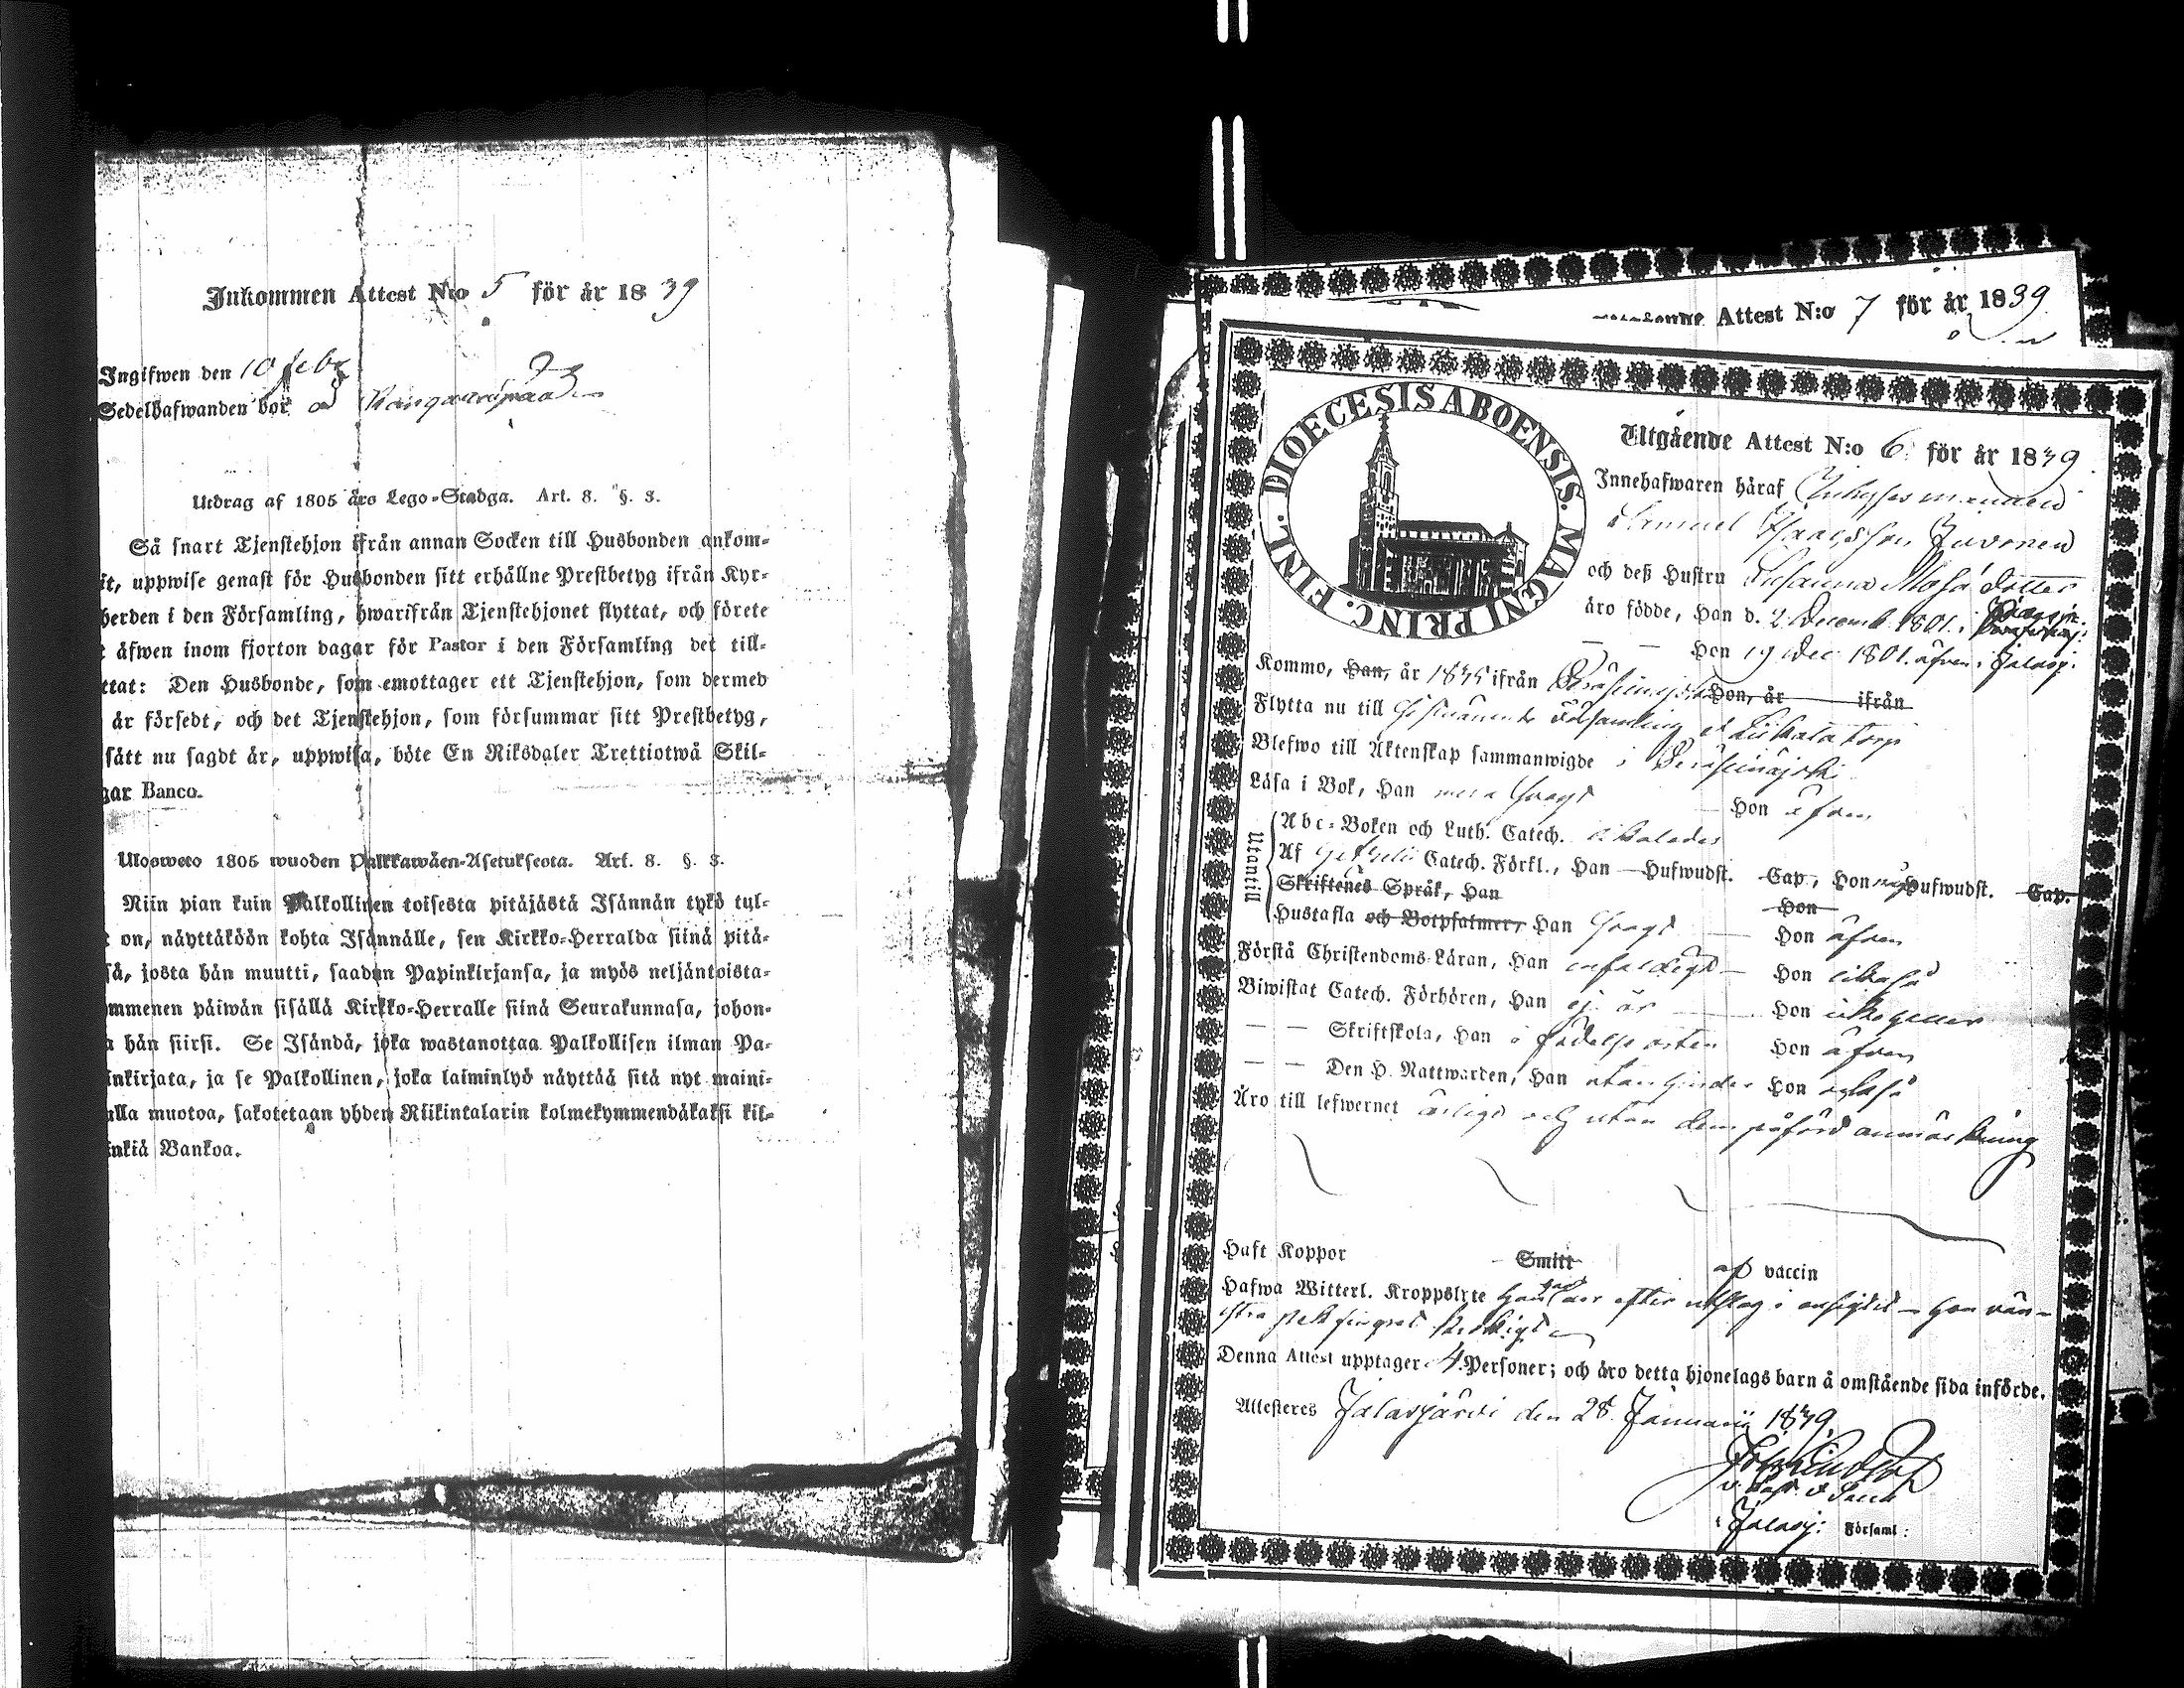 Inkommen Attest N:o 5 för år 1839
Ingifwen den 10 febr
Sedelhafwanden bor å
Utdrag af 1805 års Lego-Stadga. Art. 8. §. 3.
Så snart Tjenstehjon ifrån annan Socken till Husbonden ankom-
it, uppwise genast för Husbonden sitt erhållne Prestbetyg ifrån Kyr-
herden i den Församling, hwarifrån Tjenstehjonet flyttat, och förete
t äfwen inom fjorton dagar för Pastor i den Församling det till-
ttat: Den Husbonde, som emottager ett Tjenstehjon, som dermed
är försedt, och det Tjenstehjon, som försummar sitt Prestbetyg,
sätt nu sagdt är, uppwisa, böte En Riksdaler Trettiotwå Skil-
gar Banco.
Ulosweto 1805 wuoden Palkkawäen-Asetuksesta. Art. 8. §. 3.
Niin pian kuin Palkollinen toisesta pitäjästä Isännän tykö tul-
t on, näyttäköön kohta Isännälle, sen Kirkko-Herralda siinä pitä-
sä, josta hän muutti, saadun Papinkirjansa, ja myös neljäntoista-
mmenen päiwän sisällä Kirkko-Herralle siinä Seurakunnasa, johon-
a hän siirsi. Se Isändä, joka wastanottaa Palkollisen ilman Pa-
inkirjata, ja se Palkollinen, joka laiminlyö näyttää sitä nyt maini-
ulla muotoa, sakotetaan yhden Riikintalarin kolmekymmendäkaksi kil-
inkiä Bankoa.
Attest N:o 7 för år 1839
DIOECESIS ABOENSIS. MAGNI PRINC. FINL.
Utgående Attest N:o 6 för år 1839.
Innehafwaren häraf Inhyses mannen
Samuel Isaacsson Juvonen
och deß Hustru Susanna Mats dotter
äro födde, Han d. 2 Decemb. 1801. i
— — Hon 19 Dec 1801. äfven i Jalasj.
Kommo, Han, år 1835 ifrån Peräseinäjoki Hon, år ifrån
Flytta nu till Församling
Blefwo till Äktenskap sammanwigde i Peräseinäjoki
Läsa i Bok, Han svagt — Hon äfven
Utantill
Abc-Boken och Luth. Catech. likaledes
Af Gezelii Catech. Förkl., Han — Hufwudst. Cap., Hon Hufwudst. Cap.
Skriftenes Språk, Han Hon
Hustafla och Botpsalmer, Han svagt — Hon äfven
Första Christendoms-Läran, Han enfaldigt — Hon likaså
Biwistat Catech. Förhören, Han ej år Hon icke heller
— — Skriftskola, Han i födelseorten Hon äfven
— — Den H. Nattwarden, Han utan hinder Hon också
Äro till lefwernet ärliga och utan dem påförd anmärkning
Haft Koppor Smitt af vaccin
Hafwa Witterl. Kroppslyte Han har efter utslag i ansigtet — Hon vän-
stra
Denna Attest upptager 4 Personer; och äro detta hjonelags barn å omstående sida införde.
Attesteres Jalasjärvi den 28 Januarii 1839.
i Jalasj: Församl: